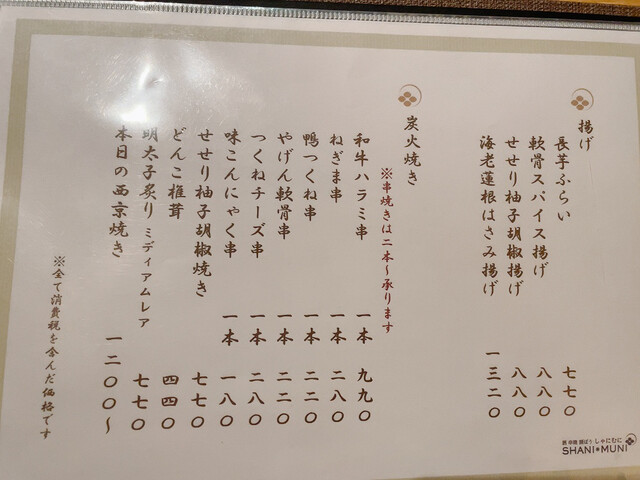 揚げ
長芋ふらい 七七〇
軟骨スパイス揚げ 八八〇
せせり柚子胡椒揚げ 八八〇
海老蓮根はさみ揚げ 一三二〇
炭火焼き
※串焼きは二本〜承ります
和牛ハラミ串 一本 九九〇
ねぎま串 一本 二八〇
鴨つくね串 一本 二二〇
やげん軟骨串 一本 二二〇
つくねチーズ串 一本 二八〇
味こんにゃく串 一本 一八〇
せせり柚子胡椒焼き 七七〇
どんこ椎茸 四四〇
明太子炙り ミディアムレア 七七〇
本日の西京焼き 一二〇〇〜
※全て消費税を含んだ価格です
しゃにむに
SHANI MUNI